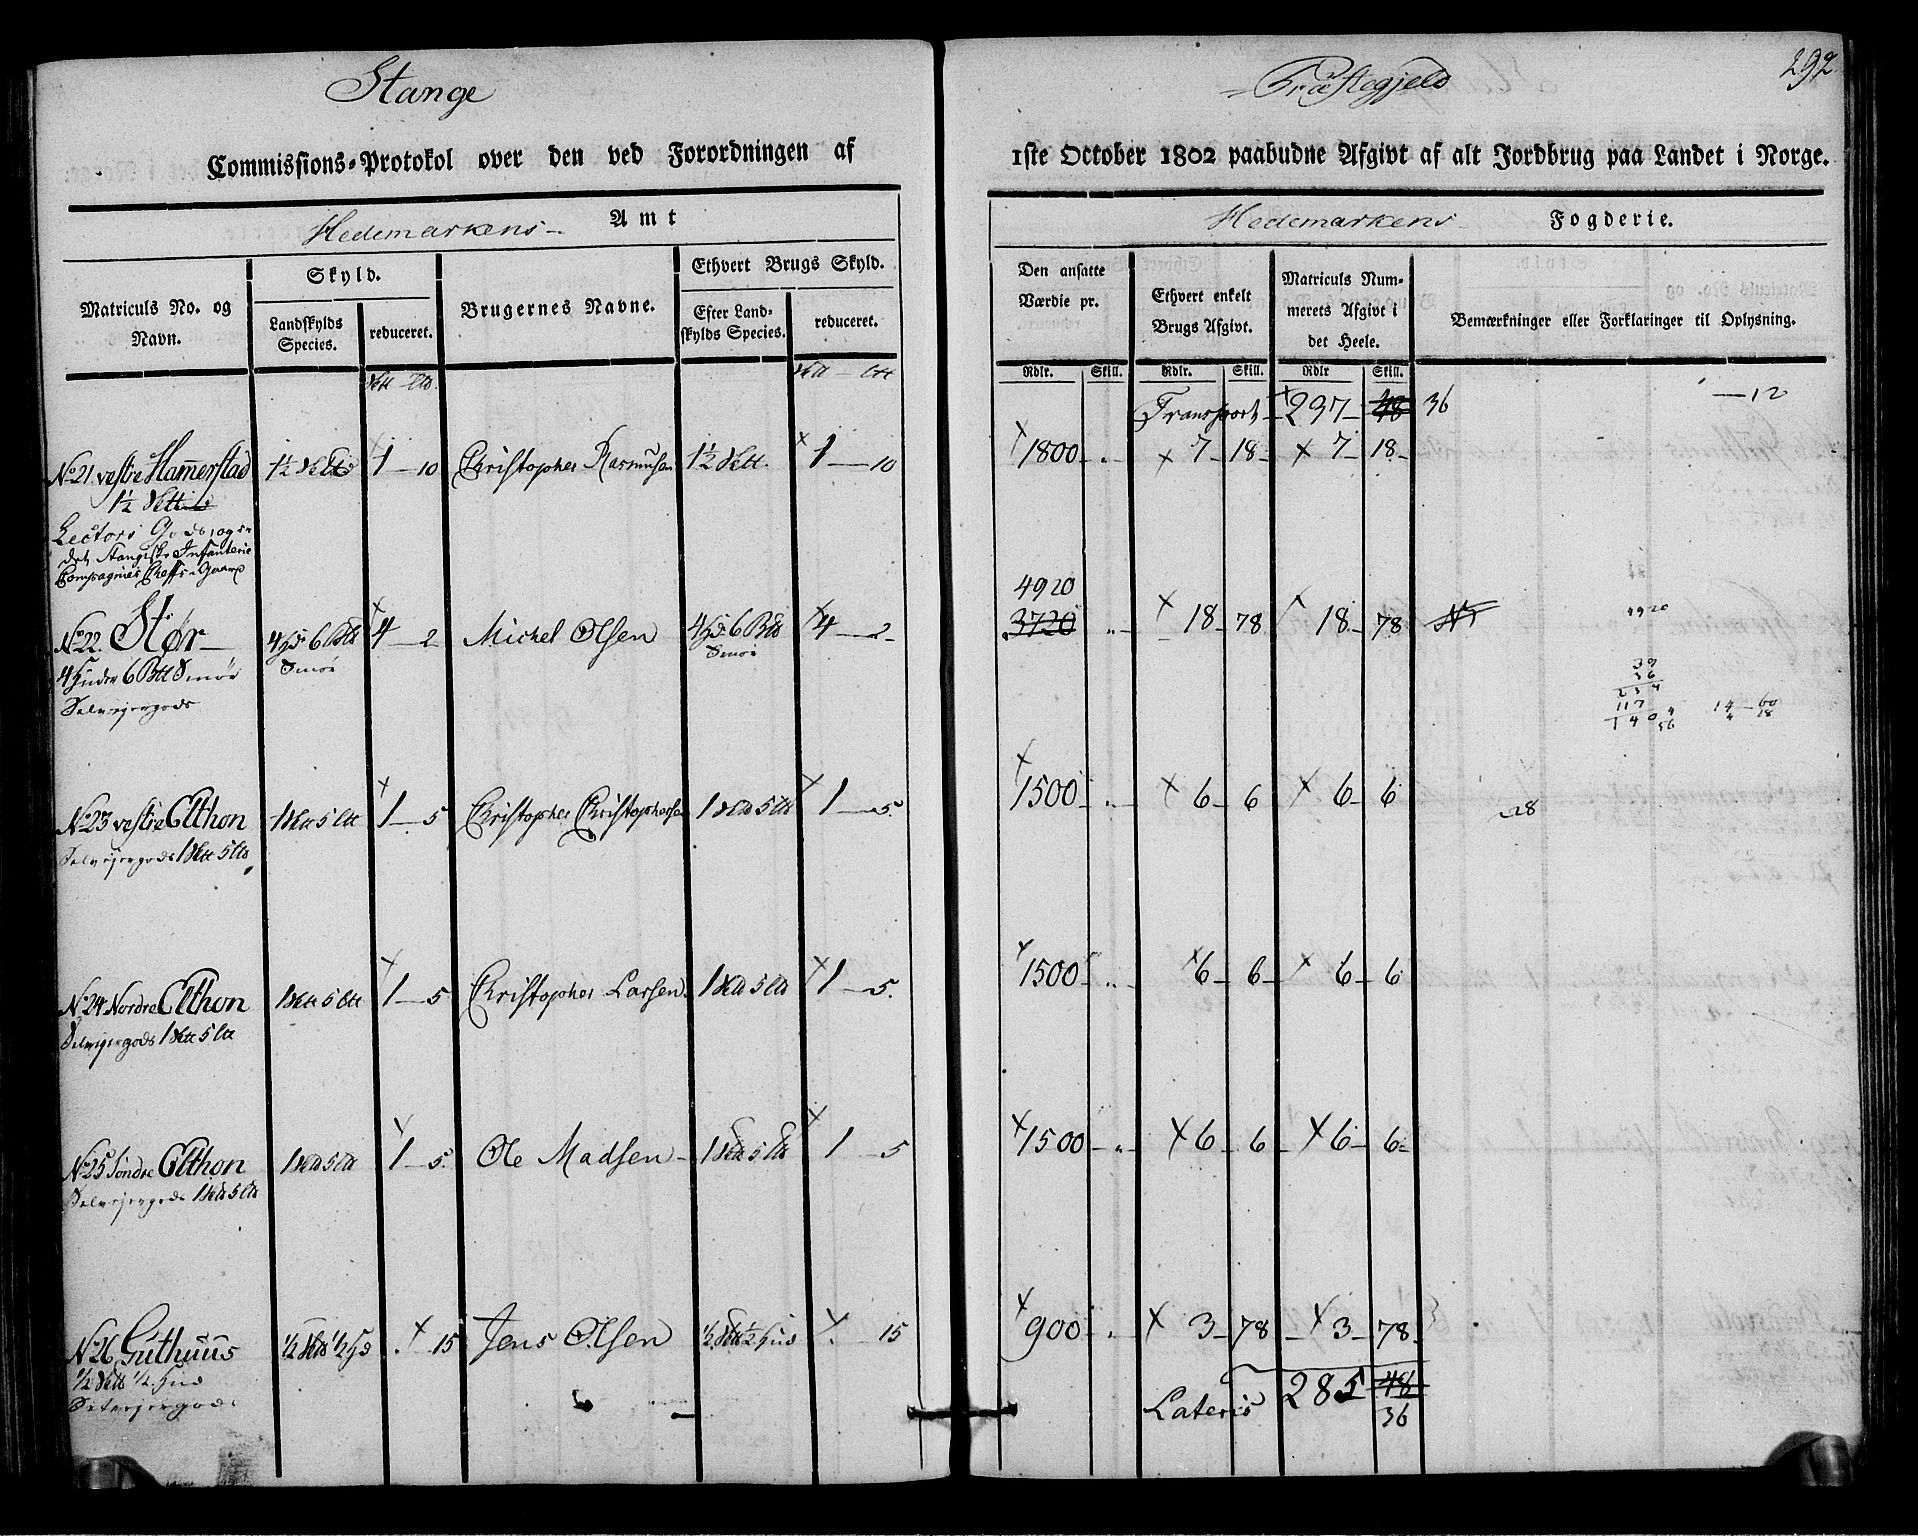 Stange
Præstegjeld
292
Commissions-Protokol over den ved Forordningen af
1ste October 1802 paabudne Afgivt af alt Jordbrug paa Landet i Norge.
Hedemarkens Amt
Hedemarkens Fogderie.
Matriculs No. og Navn.
Skyld.
Landskylds Species.
reduceret.
Brugernes Navne.
Ethvert Brugs Skyld.
Efter Landskylds Species.
reduceret.
Den ansatte Værdie pr.
Ethvert enkelt Brugs Afgivt.
Matriculs Nummerets Afgivt i det Heele.
Bemærkninger eller Forklaringer til Oplysning.
Rdlr. Skill. Rdlr. Skill. Rdlr Skill.
Transport 297 48 36
12
No 21 vestre Hamerstad 1½ 1 10 Christopher Rasmusen 1½ 1 10 1800 7 18 7 18
1½
Lectors Gods, og er
det Stangiske Infanterie
Compagnies Cheffs Gaard
4920
No 22. Stør 4 Hd 6 4 2 Michel Olsen 4 Hd 6 4 2 3720 18 78 18 78
Smør Smør
4 Huder 6 Smør
Selvejergods
4920
39
36
234
117
1404
14 60
No 23 vestre Ellthon 1 5 1 5 Christopher Christophersen 1 5 1 5 1500 6 6 6 6
Selvejergods 1 5
28
No 24 Nordre Ellthon 1 5 1 5 Christopher Larsen 1 5 1 5 1500 6 6 6 6
Selvejergods 1 5
No 25 Søndre Ellthon 1 5 1 5 Ole Madsen 1 5 1 5 1500 6 6 6 6
Selvejergods 1 5
No 26 Guthuus ½ ½ Hd 15 Jens Olsen ½ ½ Hud 15 900 3 78 3 78
½ ½ Hud
Selvejergods
Lateris 285 48
36